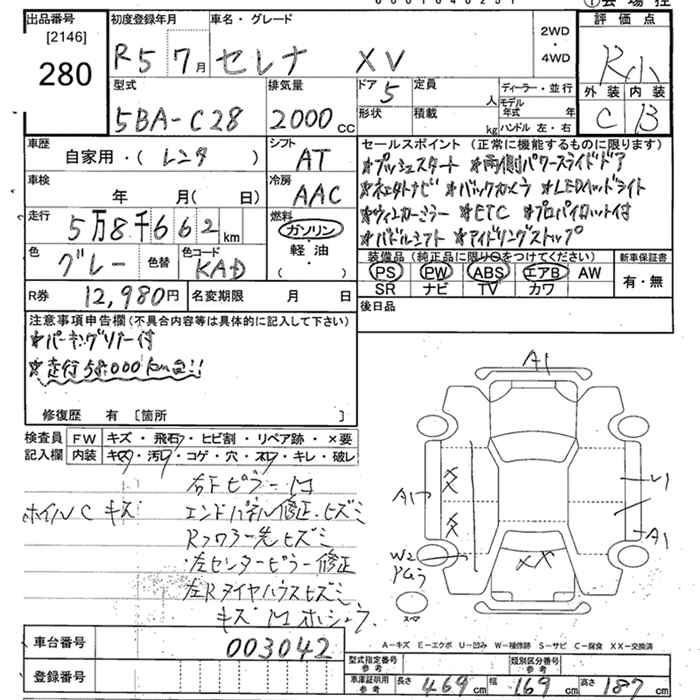 出品番号 初度登録年月 車名・グレード 2WD・4WD 評価点
[2146]
280
R5 7月 セレナ XV R小
型式 排気量 ドア 5 定員 人 ディーラー・並行 外装 内装
5BA-C28 2000cc 形状 積載 kg モデル年式 年 ハンドル 左・右 C B
車歴 自家用・(レンタ) シフト AT
車検 年 月(日) 冷房 AAC
走行 5万8千662km 燃料 ガソリン・軽油・( )
色 グレー 色替 色コード KAD
R券 12,980円 名変期限 月 日
セールスポイント(正常に機能するものに限ります)
*プッシュスタート *両側パワースライドドア
*ネエタナビ *バックカメラ *LEDヘッドライト
*ウィンカーミラー *ETC *プロパイロット付
*パドルシフト *アイドリングストップ
装備品(純正品に限り○をつけてください) 新車保証書
PS PW ABS エアB AW 有・無
SR ナビ TV カワ
後日品
注意事項申告欄(不具合内容等は具体的に記入して下さい)
*パーキングソナー付
*走行58,000km台!!
修復歴 有 〔箇所 〕
検査員 FW キズ・飛石・ヒビ割・リペア跡・×要
記入欄 内装 キズ・汚レ・コゲ・穴・スレ・キレ・破レ
右Fピラー凹
ホイルC キズ エンドパネル修正、ヒズミ
Rフロアー先ヒズミ
左センターピラー修正
左Rタイヤハウスヒズミ
キズ 凹 ホシュウ
A1
A1
A1
U1
W2
XX
XX
XX
スペア
A-キズ E-エクボ U-凹み W-補修跡 S-サビ C-腐食 XX-交換済
車台番号 003042
登録番号
型式指定番号 参考 類別区分番号 参考
車庫証明用 参考 長さ 469cm 幅 169cm 高さ 187cm